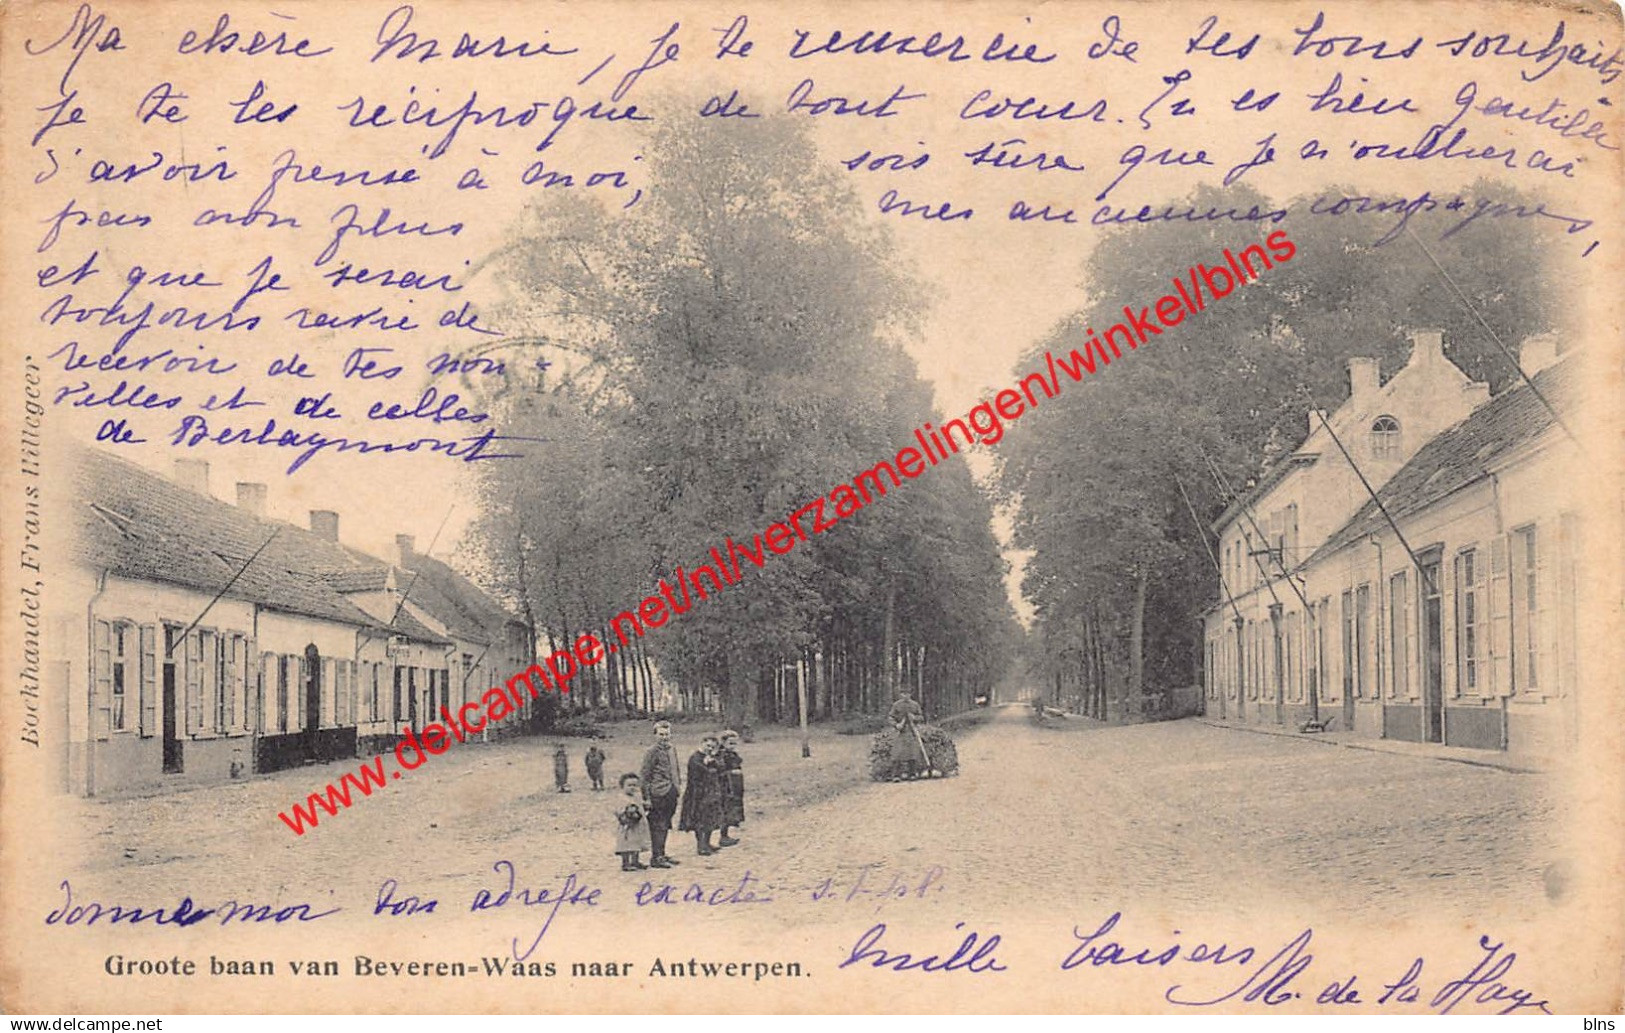 Ma chère Marie, je te remercie de tes bons souhaits
je te les réciproque de tout cœur. Tu es bien gentille
d'avoir pensé à moi, sois sûre que je n'oublierai
pas non plus mes anciennes compagnes,
et que je serai
toujours ravie de
recevoir de tes nou-
velles et de celles
de Berlaymont
donne moi ton adresse exacte s.t.pl.
Mille baisers
M. de la Haye
Groote baan van Beveren=Waas naar Antwerpen.
Boekhandel, Frans Hillegeer
www.delcampe.net/nl/verzamelingen/winkel/blns
Website: delcampe.net
blns